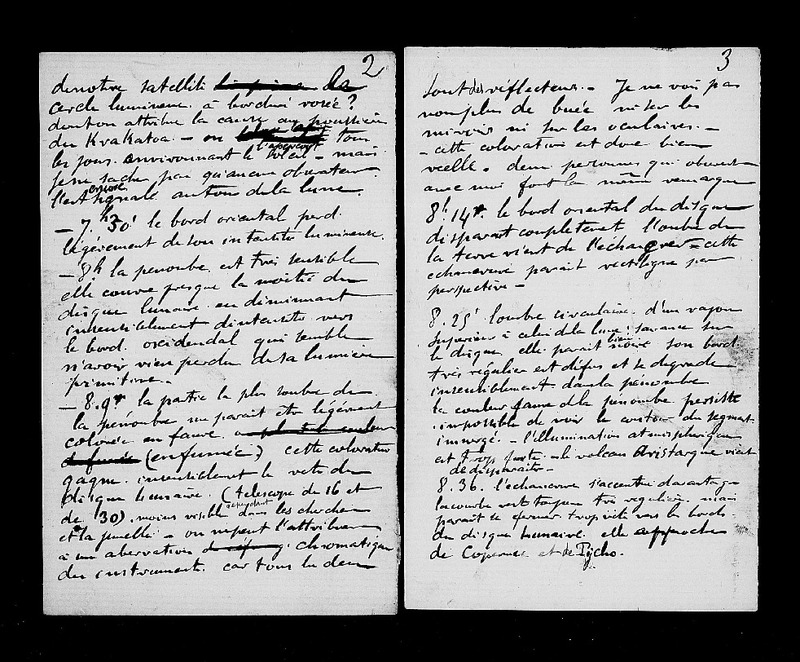 2
de notre satellite le
cercle lumineux à bordure rosée?
dont on attribue la cause aux poussières
du Krakatoa. - on tous
l'aperçoit
les jours environnant le soleil - mais
je ne sache pas qu'aucun observateur
encore
l'ait signalé autour de la lune.
- 7.h 30' le bord oriental perd
légèrement de son intensité lumineuse.
- 8h la penombre est très sensible
elle couvre presque la moitié du
disque lunaire en diminuant
insensiblement d'intensité vers
le bord occidental qui semble
n'avoir rien perdu de sa lumière
primitive. -
- 8.9m la partie la plus sombre de
la pénombre me parait être légèrement
colorée en fauve, a plus la couleur
de fumée (enfumée) cette coloration
gagne insensiblement le reste du
Disque lunaire. (telescope de 16 et
cependant
de 30), moins visible dans les chercheurs
et la jumelle. - on ne peut l'attribuer
à un aberration chromatique
des instruments. car tous les deux
3
sont des réflecteurs. - Je ne vois pas
non plus de buée ni sur les
miroirs ni sur les oculaires. -
- cette coloration est donc bien
réelle. deux personnes qui observent
avec moi font la même remarque
8h.14m. le bord oriental du disque
disparait complètement l'ombre de
la terre vient de l'échancrer - cette
echancrure parait rectiligne par
perspective -
8.25' l'ombre circulaire d'un rayon
supérieur à celui de la lune s'avance sur
bien
le disque elle parait noire son bord
très régulier est diffus et se dégrade
insensiblement dans la pénombre
la couleur fauve de la penombre persiste
impossible de voir le contour du segment
immergé. - l'illumination atmosphérique
est trop forte - le volcan Aristarque vient
de disparaitre -
8.36. l'échancrure s'accentue davantage
la courbe reste toujours très régulière, mais
parait se fermer trop vite vers les bords
du disque lunaire. elle approche
de Copernic et de Tycho.